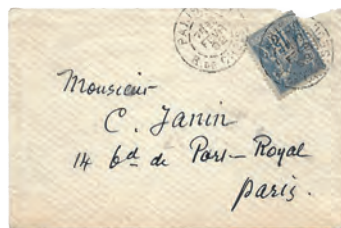 Monsieur
C. Janin
14 bd de Port-Royal
Paris.